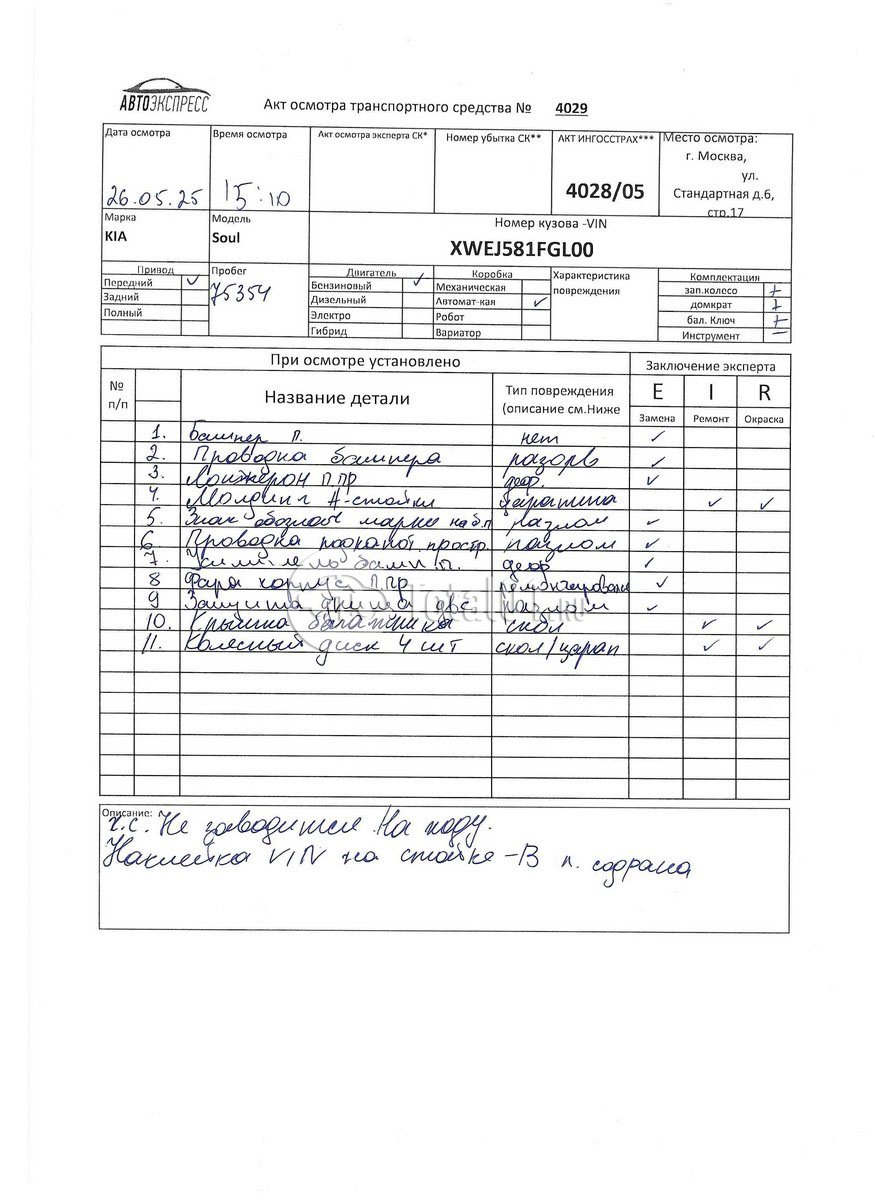 АВТОЭКСПРЕСС
Акт осмотра транспортного средства № 4029
Дата осмотра Время осмотра Акт осмотра эксперта СК* Номер убытка СК** АКТ ИНГОССТРАХ*** Место осмотра:
г. Москва,
ул.
26.05.25 15:10 4028/05 Стандартная д.6,
стр.17
Марка Модель Номер кузова -VIN
KIA Soul XWEJ581FGL00
Привод Пробег Двигатель Коробка Характеристика Комплектация
Передний ✓ 75354 Бензиновый ✓ Механическая повреждения зап.колесо +
Задний Дизельный Автомат-кая ✓ домкрат +
Полный Электро Робот бал. Ключ +
Гибрид Вариатор Инструмент –
При осмотре установлено Заключение эксперта
№ п/п Название детали Тип повреждения (описание см.Ниже E I R
Замена Ремонт Окраска
1. Бампер п. нет ✓
2. Проводка бампера разорв ✓
3. Лонжерон п.пр деф. ✓
4. Молдинг А-стойки царапина ✓ ✓
5. Знак марки на б.п разлом ✓
6 Проводка подкапот. простр. разлом ✓
7. Усилитель бамп. п. деф ✓
8 Фара корпус п.пр ✓
9 Защита днища две разлом ✓
10. Крышка багажника скол ✓ ✓
11. Колесный диск 4 шт скол/царап ✓ ✓
TotalTut.RU
Описание:
х.с. Не заводится. На ходу.
Наклейка VIN на стойке -В п. содрана